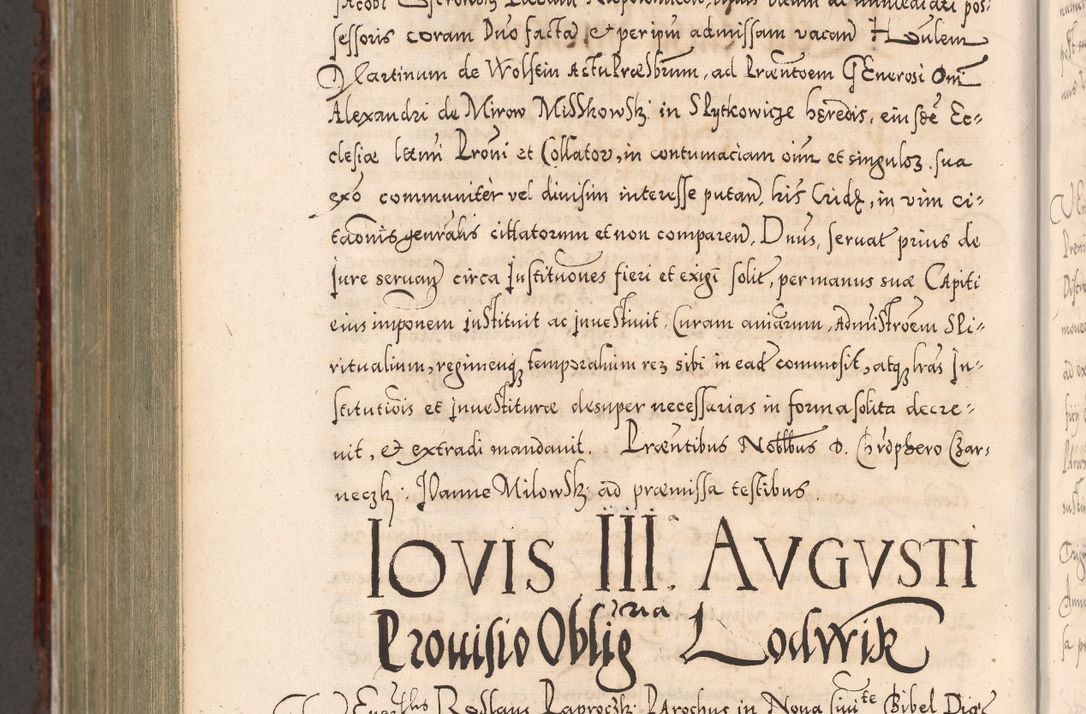 sessoris coram Dno facta et per ipm admissam vacan Hoīulem
Martinum de Wolsein Actu Præsbrum, ad Præntōem Generosi Dni
Alexandri de Mirow Misskowskj in Spytkowicze heredis, eiusdē Ec-
clesiæ lttmi Proni et Collator, in contumaciam oim et singuloꝝ sua
exō communitèr vel divisim interesse putan, his Cridæ, in vim ci-
taōnis genralis cittatorum et non comparen, Dnus, servat prius de
Jure servan circa Institutiones fieri et exigi solit, per manus suæ Capiti
eius imponem instituit ac investivit, Curam aniarum, Admistrōem Spi-
ritualium, regimenq temporalium reꝝ sibi in eadē commosit, atq lras In-
stitutiōis et investituræ desuper necessarias in forma solita decre-
uit, et extradi mandavit. Præntibus Nobbus D. Chrōphero Czar-
neczkj. Joanne Milowskj ad præmissa testibus
IOVIS III.ᵃ AVGVSTI
Provisio Obligria Lodwik
Venerblis Bosslaus Paproczkj Parochus in Nova Civite Bibel Diœ